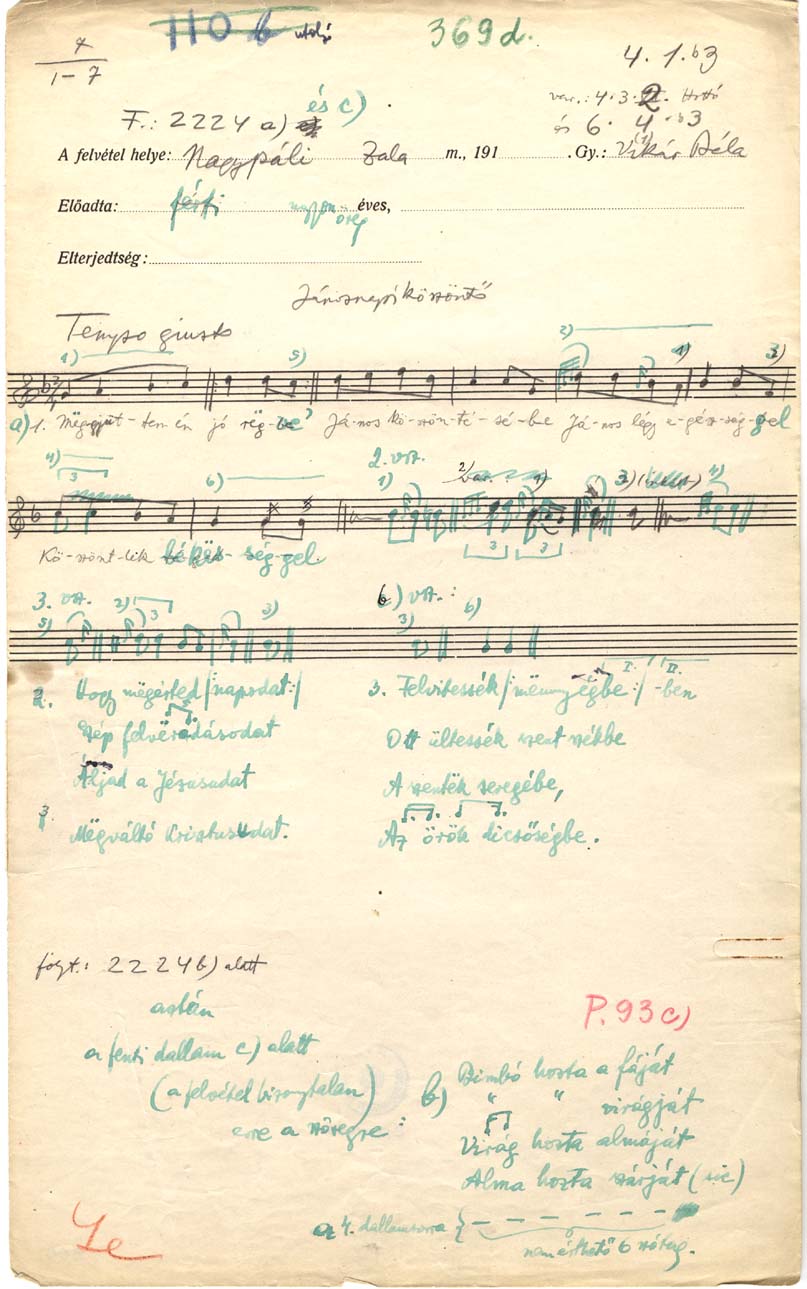 7
1-7
110 b utolj
369 d.
4. 1. b3
var.: 4. 3. 2. Hottó
és c)
F.: 2224 a)
és 6. 4. b3
A felvétel helye: Nagypáli Zala m., 191 . Gy.: Vikár Béla
Előadta: férfi nagyon öreg éves,
Elterjedtség:
Jánosnapi köszöntő
Tempo giusto
1) 5) 2) 1) 3)
a) 1. Mëggyüt-tem én jó rég-be' Já-nos kö-szön-té-sé-be Já-nos légy e-gész-ség-gel
4) 3 6) 2. vsz. 1) 2) var. 1) 3) 4)
3 3
Kö-szönt-lik békës-ség-gel.
3. vsz. 2) 3 b) vsz.:
5) 1) 3) 3) 6)
2. Hogy mëgérted /:napodat:/
Szép felvëradásodat
Áljad a Jézusudat
Mëgváltó Krisztusudat.
3. Felvitessék /:mënnyégbe:/ -ben
I. II.
Ott ültessék szent székbe
A szentëk seregébe,
Az örök dicsőségbe.
folyt.: 2224 b) alatt
aztán
a fenti dallam c) alatt
(a felvétel bizonytalan)
erre a szövegre:
P. 93 c)
b) Bimbó hozta a fáját
" " virágját
Virág hozta almáját
Alma hozta szárját (sic)
a 4. dallamsorra { - - - - - -
nem érthető 6 szótag.
Ie